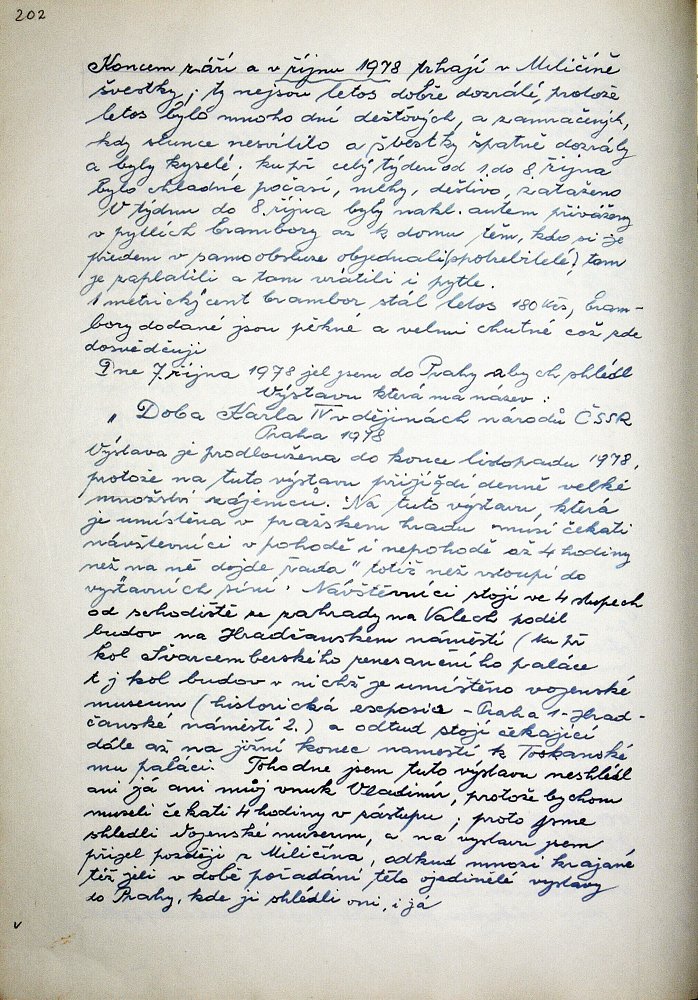 202
Koncem září a v říjnu 1978 trhají v Miličíně
švestky; ty nejsou letos dobře dozrálé, protože
letos bylo mnoho dní dešťových, a zamračených,
kdy slunce nesvítilo a švestky špatně dozrály
a byly kyselé; ku př celý týden od 1. do 8 října
bylo chladné počasí, mlhy, deštivo, zataženo
V týdnu do 8. října byly nákl. autem přiváženy
v pytlích brambory až k domu těm, kdo si je
předem v samoobsluze objednali (spotřebitelé), tam
je zaplatili a tam vrátili i pytle.
1 metrický cent brambor stál letos 180 Kčs, bram-
bory dodané jsou pěkné a velmi chutné což zde
dosvědčuji
Dne 7. října 1978 jel jsem do Prahy abych shlédl
Výstavu která má název:
„Doba Karla IV v dějinách národů ČSSR
Praha 1978
Výstava je prodloužena do konce listopadu 1978,
protože na tuto výstavu přijíždí denně velké
množství zájemců. Na tuto výstavu, která
je umístěna v pražském hradu musí čekati
návštevníci v pohodě i nepohodě až 4 hodiny
než na ně dojde "řada" totiž než vstoupí do
výstavních síní. Návštěvníci stojí ve 4 stupech
od schodiště ze zahrady na Valech podél
budov na Hradčanském náměstí (ku př
kol Švarcemberského renesančního paláce
t j kol budov v nichž je umístěno vojenské
museum (historická exposice - Praha 1 - Hrad-
čanské náměstí 2.) a odtud stojí čekající
dále až na jižní konec namestí k Toskanské
mu paláci. Toho dne jsem tuto výstavu neshlédl
ani já ani můj vnuk Vladimír, protože bychom
museli čekati 4 hodiny v zástupu; proto jsme
shledli vojenské museum, a na vystavu jsem
přijel později z Miličína, odkud mnozí krajané
též jeli v době pořádání této ojedinělé výstavy
do Prahy, kde ji shlédli oni, i já
v